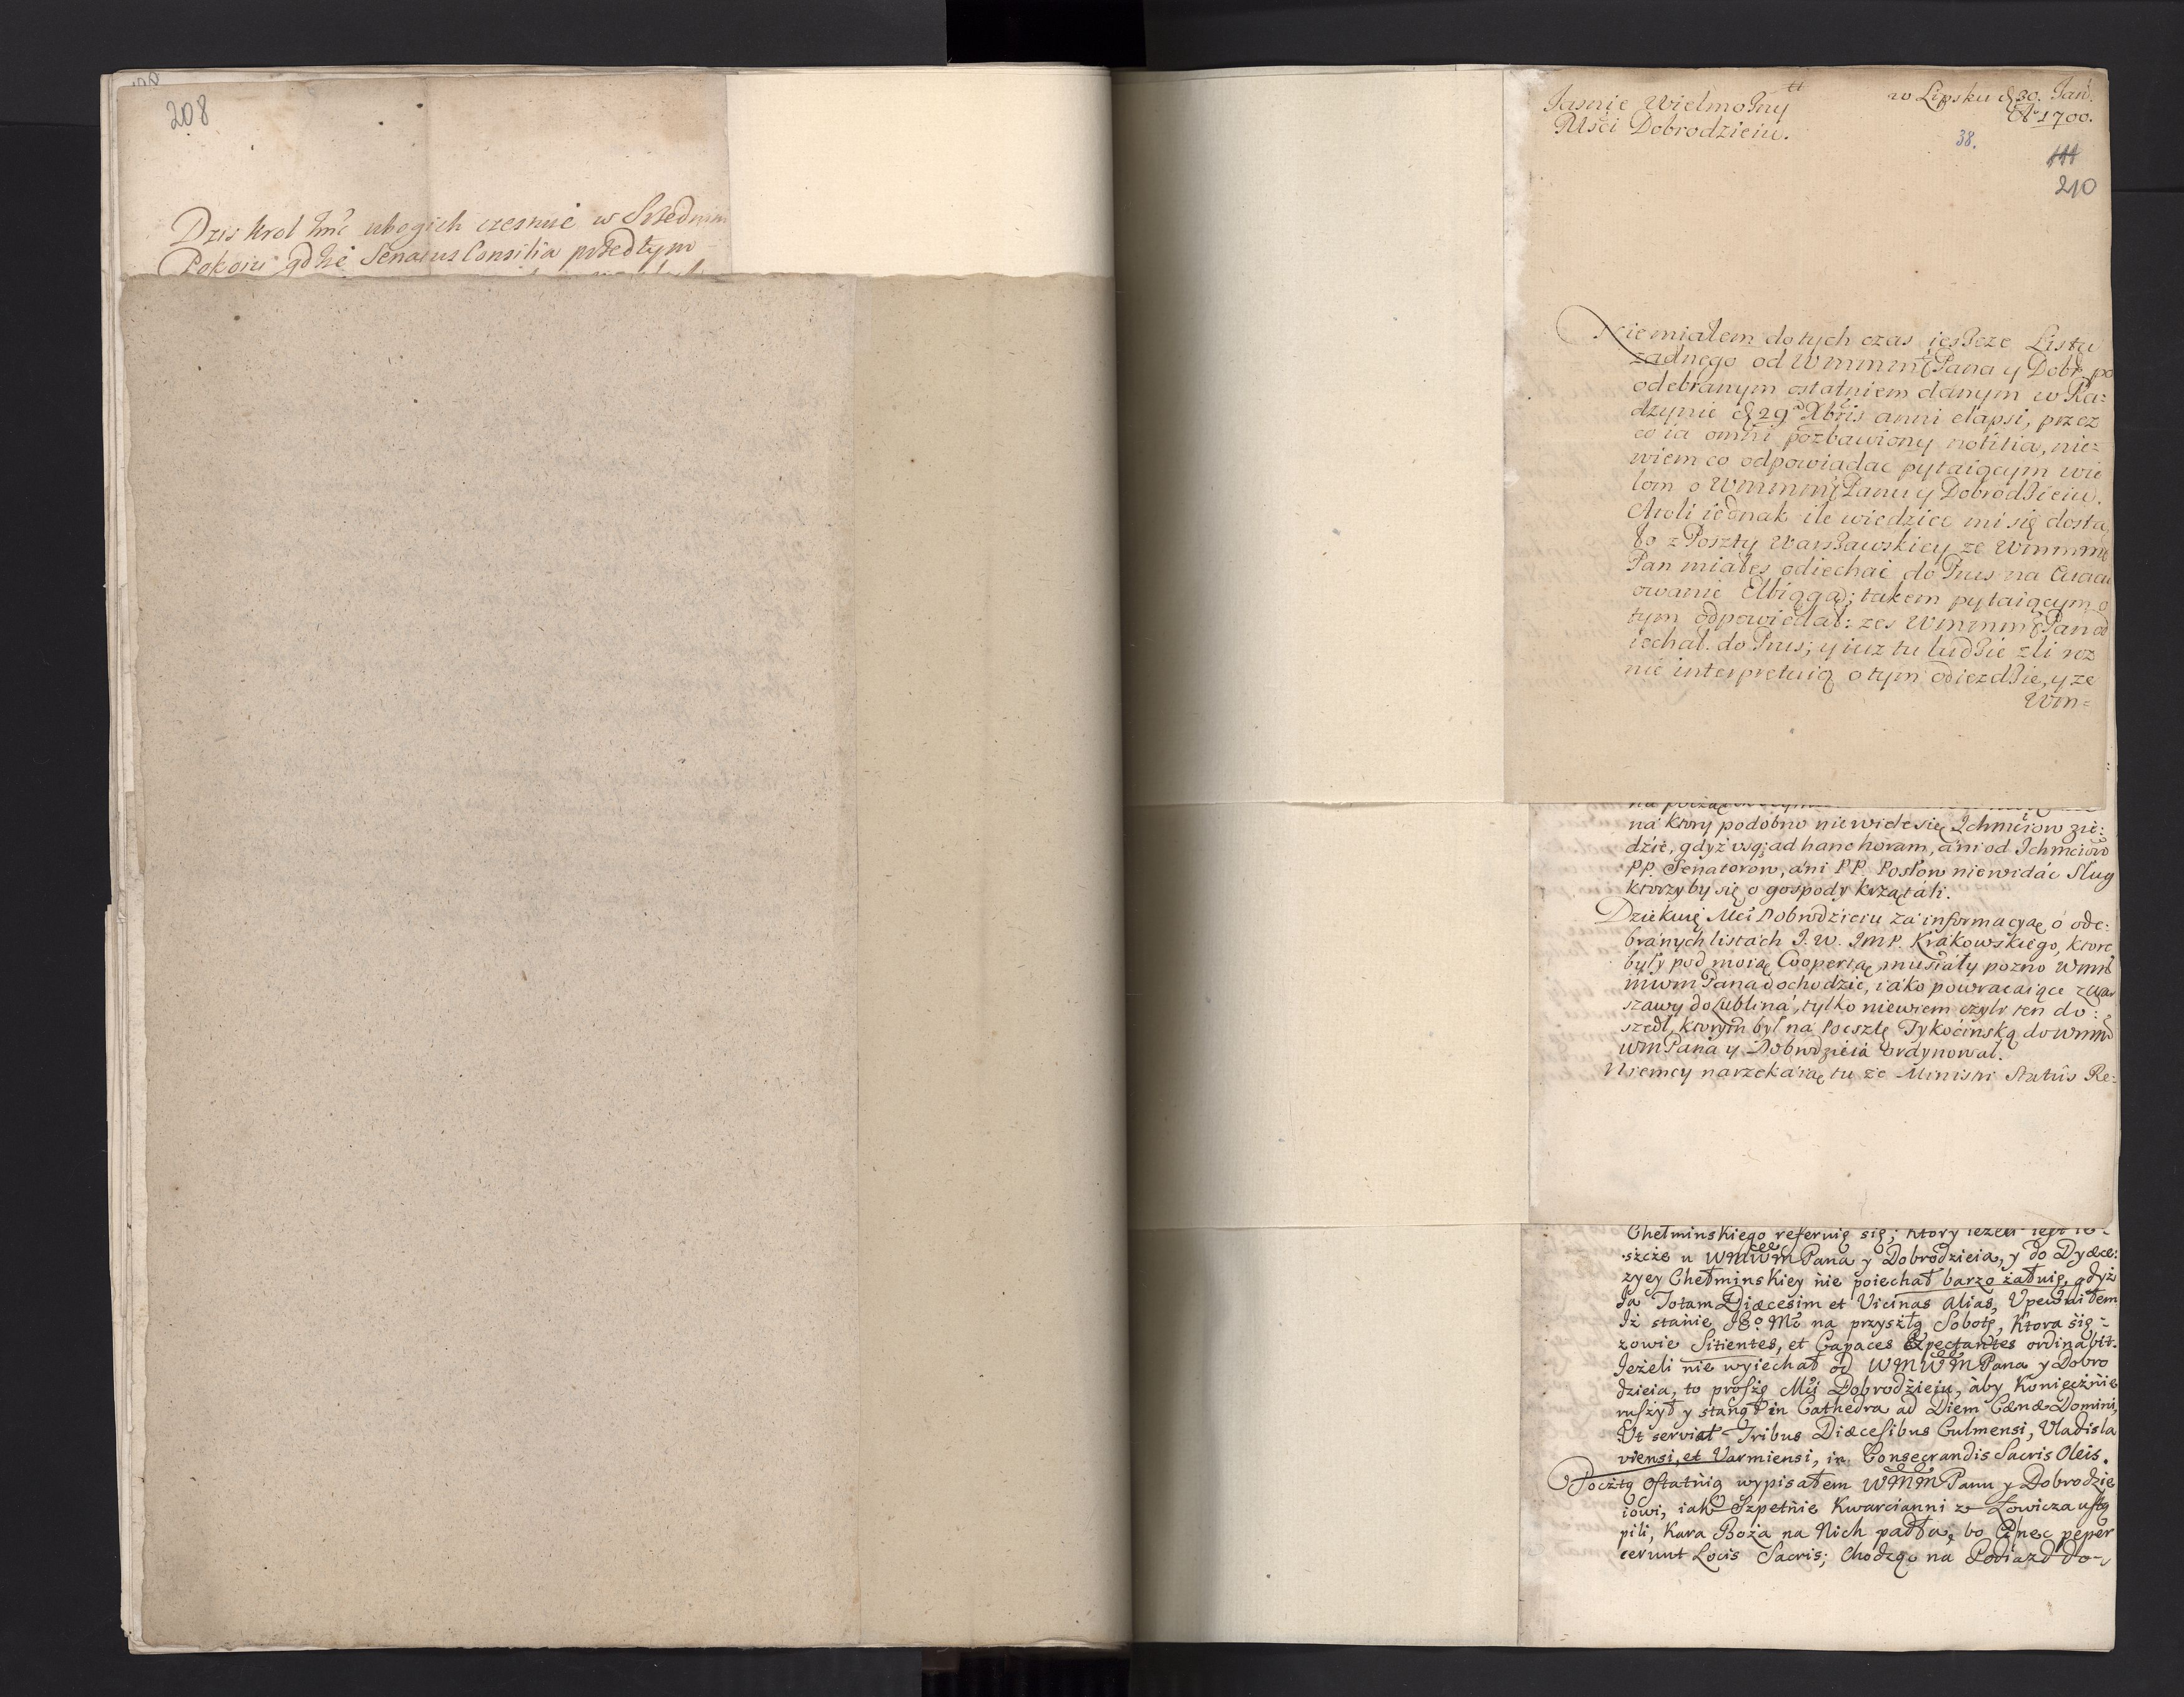 208
Dzis Krol Jmć ubogich czestuie w Srzednim
Pokoiu gdzie Senatus Consilia przedtym
Jasnie Wielmozny
Mści Dobrodzieiu.
w Lipsku d 30. Jan.
Aº 1700.
38.
111
210
Nie miałem do tych czas ieszcze Listu
zadnego od Wmmm Pana y Dobr. po
odebranym ostatniem danym w Ra=
dzynie d 29 Xbris anni elapsi, przez
co ia omni pozbawiony notitia, nie=
wiem co odpowiadac pytaiącym wie
lom o Wmmm Panu y Dobrodzieiu.
Atoli iednak ile wiedziec mi się dosta
ło z Poszty Warszawskiey ze Wmmm
Pan miałes odiechać do Prus na Evacu
owanie Elbiąga; takem pytaiącym o
tym odpowiedał: zes Wmmm Pan od
iechał do Prus; y iuz tu ludzie zli roz
nie interpretuią o tym odiezdzie, y ze
Wm=
na ktory podobno nie wiele się Ichmćiow zie:
dzie, gdyż usq; ad hanc horam, ani od Ichmciow
PP. Senatorow, ani PP. Posłow niewidać Sług
ktorzyby się o gospody krzątali.
Dziekuię Mći Dobrodzieiu za informacyą o ode:
branych listach J. W. Jmp. Krakowskiego, ktore
były pod moią Coopertą, musiały pozno Wmm
mwm Pana dochodzic, iako powracaiące z War
szawy do Lublina, tylko niewiem czyli ten do:
szedł, ktorym był na Pocsztę Tykocinską do Wmm
wm Pana y Dobrodzieia ordynował.
Niemcy narzekaią tu ze Ministri Status Re:
Chełminskiego referuię się; ktory ieżeli iest ie-
szcze u WMWM Pana y Dobrodzieia, y do Dyæce:
zyey Chełminskiey nie poiechał barzo żałuię, gdyż
Ja Totam Diæcesim et Vicinas Alias, Upewniłem
Iż stanie Jgo Mć na przyszłą Sobotę, Ktora się -
zowie Sitientes, et Capaces Expectantes ordinabit.
Ieżeli nie wyiechał od WMWM Pana y Dobro
dzieia, to proszę Mći Dobrodzieiu, aby Koniecznie
ruszył y stanął in Cathedra ad Diem Cænæ Domini,
Ut serviat Tribus Diæcesibus Culmensi, Vladisla
viensi, et Varmiensi, in Consecrandis Sacris Oleis.
Pocztą Ostatnią wypisałem WMM Panu y Dobrodzie
iowi, iak Szpetnie Kwarcianni z Łowicza ustą
pili, Kara Boża na Nich padła, bo nec peper
cerunt Locis Sacris; Chodząc na Podiazd do-